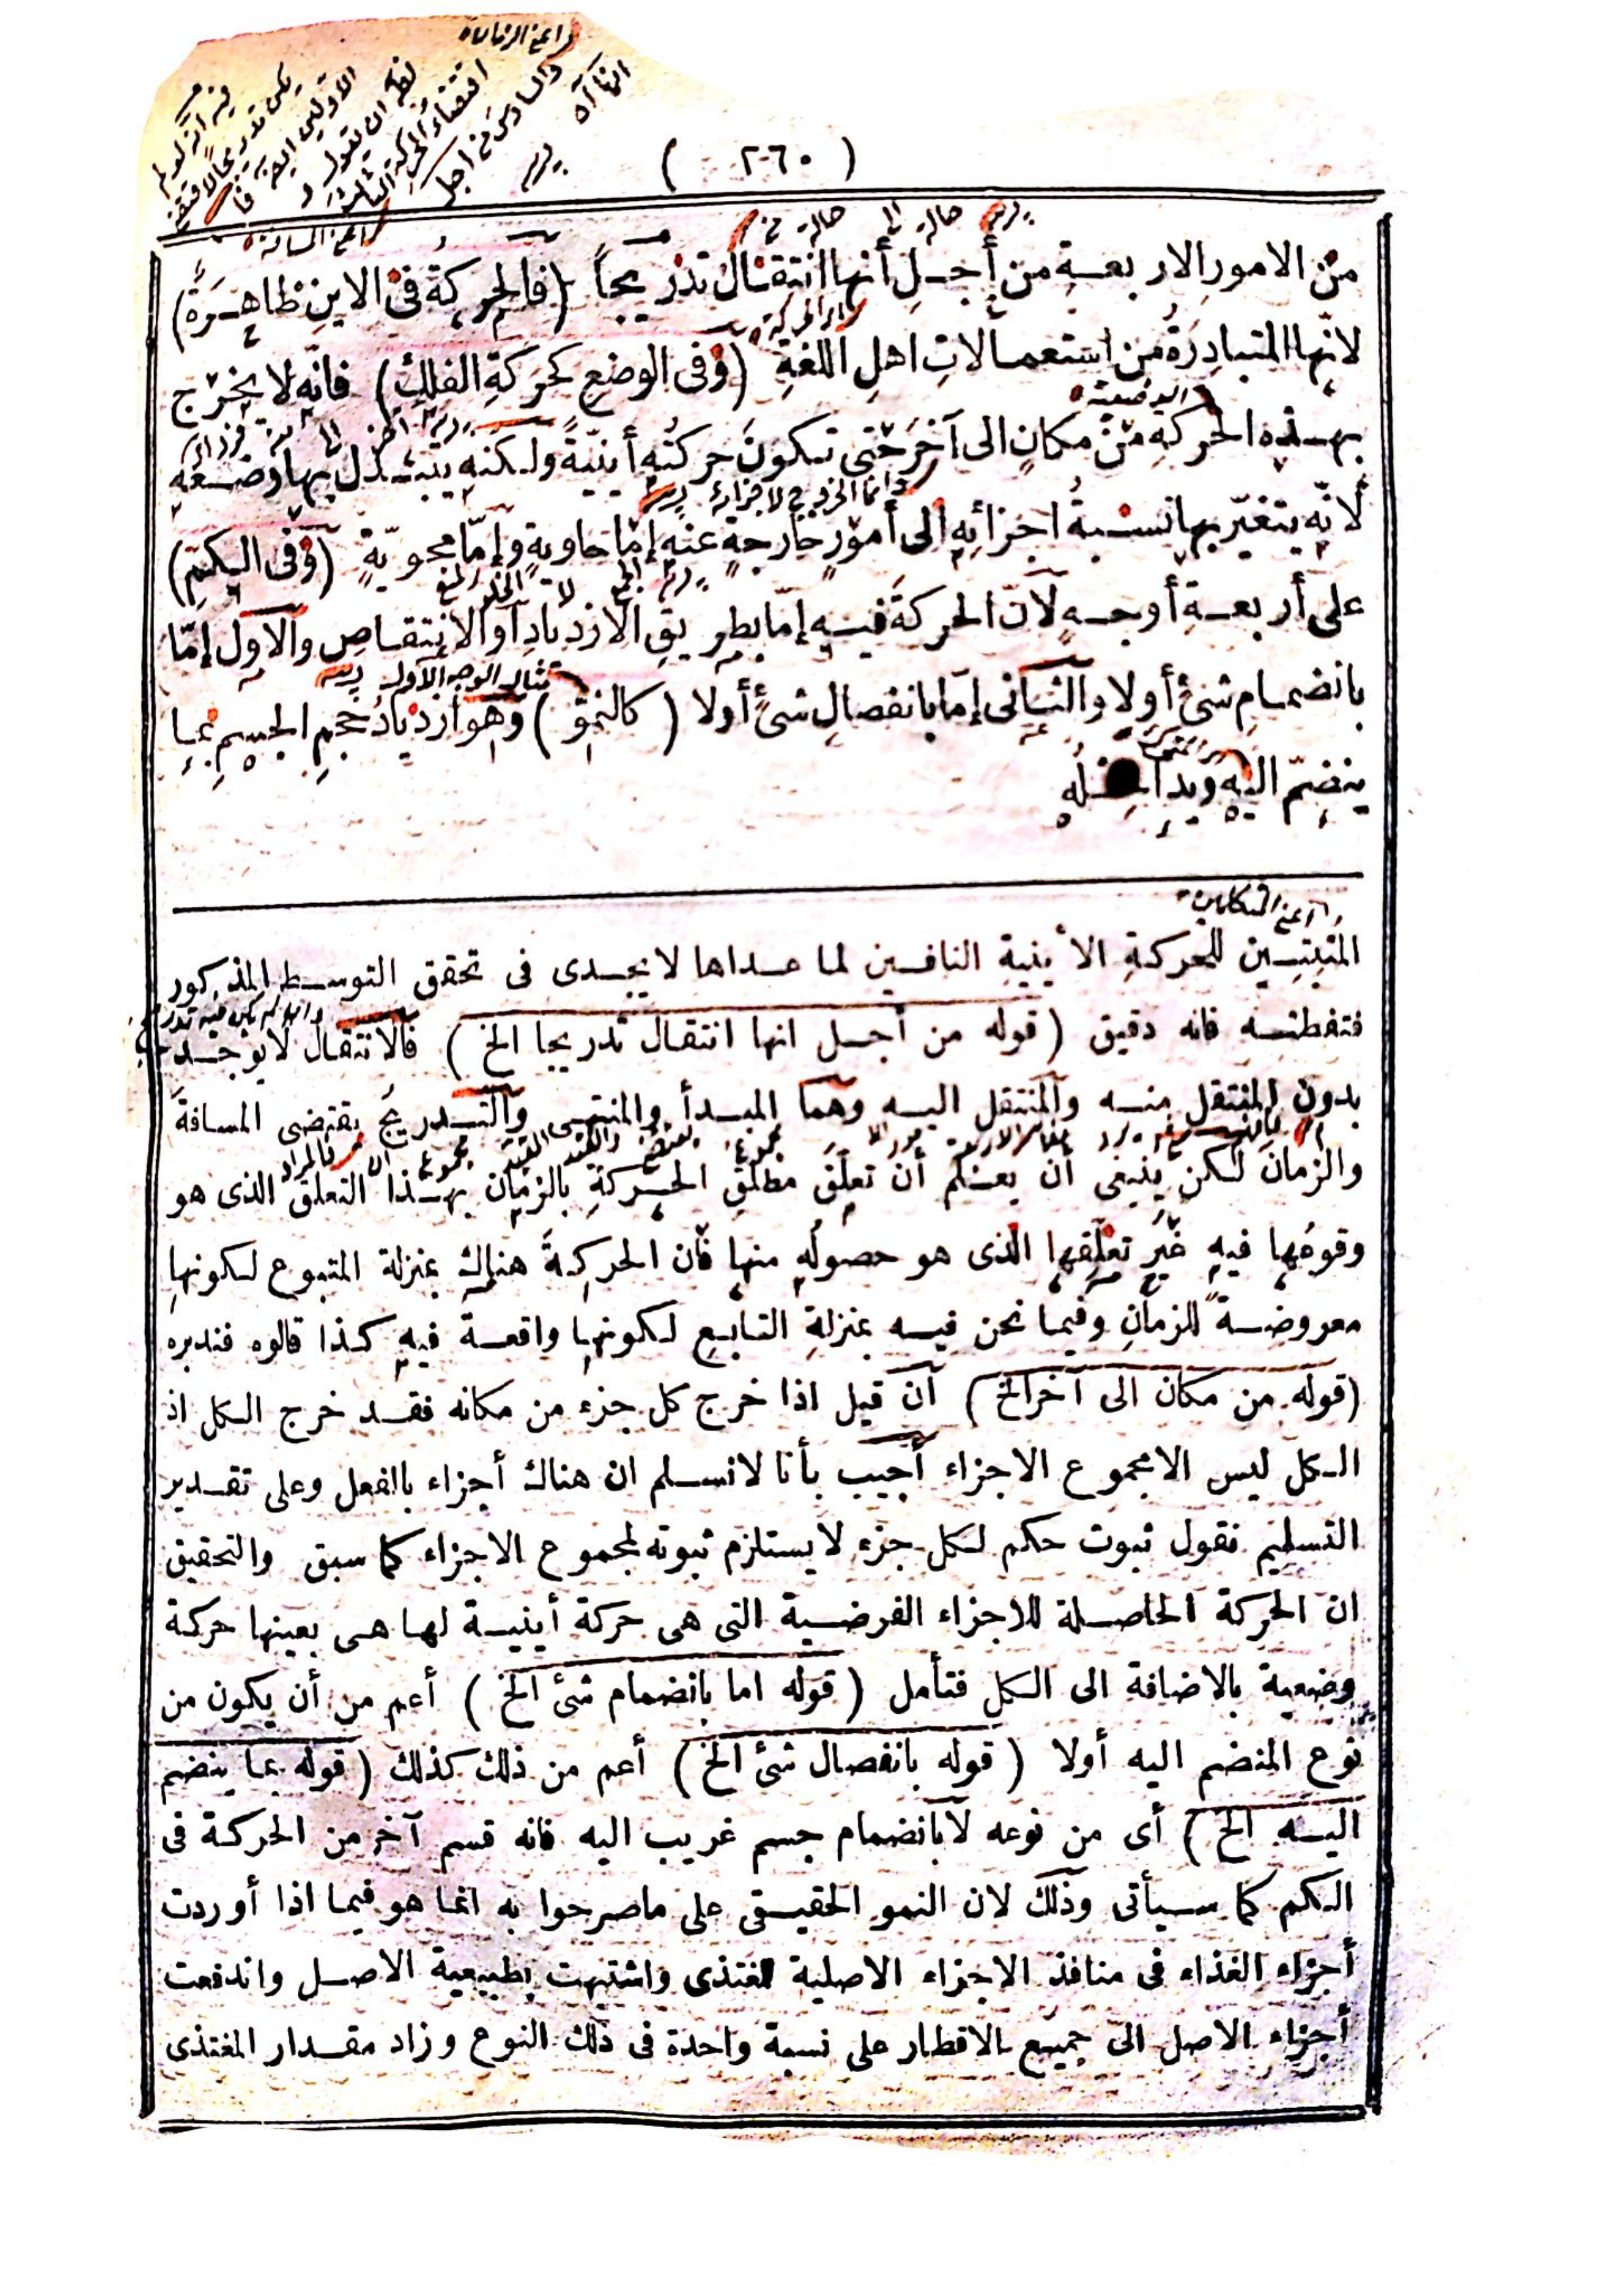 ( ٢٦٠ )
من الامورِ الاربعـةِ من أجـلِ أنها انتقـال تدريجاً (فالحركةُ فى الاينِ ظاهِـرَةٌ)
لانّها المتبادِرَةُ من استعمـالاتِ اهلِ اللغةِ (وفى الوضعِ كحركةِ الفلكِ) فانّه لا يخرج
بهـذه الحركةِ من مكانٍ الى آخرَ حتى تكونَ حركتُه أينيّةً ولكنّه يتبـدّل بها وضـعُه
لانّه يتغيّر بها نسـبةُ اجزائِه الى أمورٍ خارجةٍ عنه إمّا حاويةٍ وإمّا محويّةٍ (وفى الكمِّ)
على أربعـةِ أوجـهٍ لانّ الحركةَ فيـه إمّا بطريقِ الازديادِ أو الانتقـاصِ والاوّل إمّا
بانضمـامِ شئٍ أولا والثـانى إمّا بانفصالِ شئٍ أولا (كالنموّ) وهو ازديادُ حجمِ الجسمِ بمـا
ينضمّ اليه ويداخـلُه
المثبتـين للحركةِ الأينية النافـين لما عـداها لا يجـدى فى تحقق التوسـط المذكور
فتفطنـه فانه دقيق (قوله من أجـل انها انتقـال تدريجا الخ) فالانتقـال لا يوجـد
بدون المنتقل منـه والمنتقل اليـه وهما المبـدأ والمنتهـى والتـدريج يقتضى المسافة
والزمان لكن ينبغى أن يعـلم أن تعلّق مطلق الحـركةِ بالزمان بهـذا التعلق الذى هو
وقوعُها فيه غيرُ تعلّقها الذى هو حصولُه منها فان الحركةَ هناك بمنزلة المتبوع لكونها
معروضـة للزمان وفيما نحن فيـه بمنزلةِ التـابع لكونها واقعـة فيه كـذا قالوه فتدبره
(قوله من مكان الى آخر الخ) ان قيل اذا خرج كل جزء من مكانه فقـد خرج الكل اذ
الكل ليس الا مجموع الاجزاء أجيب بأنا لانسـلم ان هناك أجزاء بالفعل وعلى تقـدير
التسليم نقول ثبوت حكم لكل جزء لا يستلزم ثبوته لمجموع الاجزاء كما سبق والتحقيق
ان الحركة الحاصـلة للاجزاء الفرضـية التى هى حركة أينيـة لها هـى بعينها حركة
وضعية بالاضافة الى الكل فتأمل (قوله اما بانضمام شئ الخ) أعم من أن يكون من
نوع المنضم اليه أولا (قوله بانفصال شئ الخ) أعم من ذلك كذلك (قوله بما ينضم
اليـه الخ) أى من نوعه لا بانضمام جسم غريب اليه فانه قسم آخر من الحركة فى
الكم كما سـيأتى وذلك لان النمو الحقيـقى على ماصرحوا به انما هو فيما اذا أوردت
أجزاء الغذاء فى منافذ الاجزاء الاصلية للمغتذى واشتبهت بطبيعية الاصـل واندفعت
أجزاء الاصل الى جميـع الاقطار على نسبة واحدة فى ذلك النوع وزاد مقـدار المغتذى